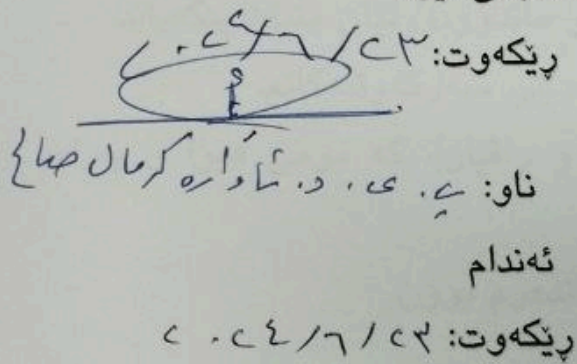 ڕێکەوت: ٢٠٢٤/٦/٢٣
ناو: پ. ی. د. ئاوارە کرمال صالح
ئەندام
ڕێکەوت: ٢٠٢٤/٦/٢٣